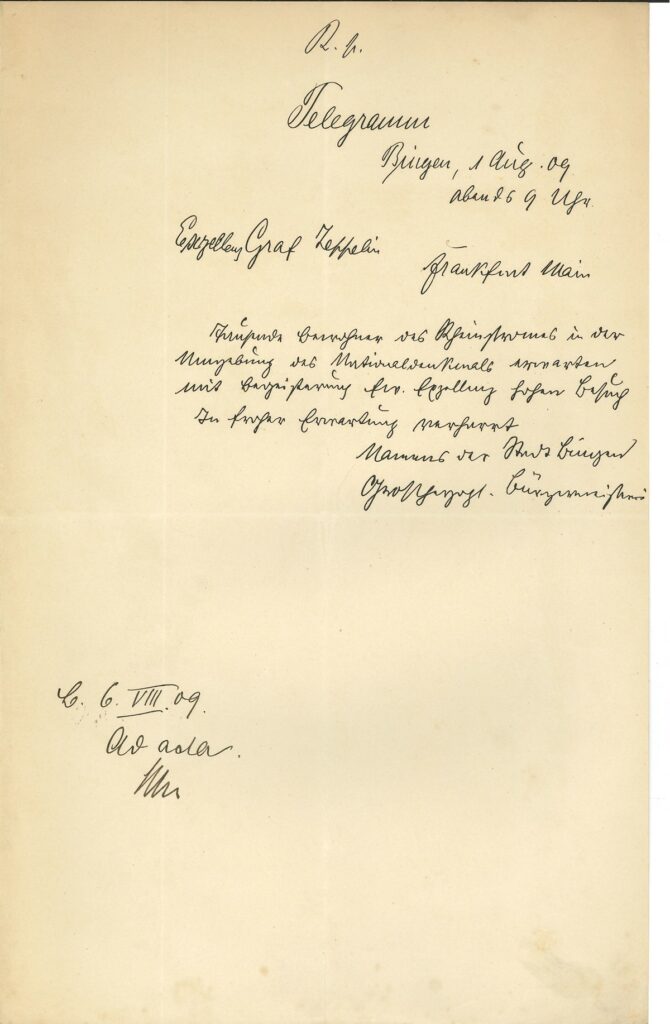 R. p.
Telegramm
Bingen, 1 Aug. 09
abends 9 Uhr.
Exzellenz Graf Zeppelin
Frankfurt Main
Tausende Bewohner des Rheinstromes in der
Umgebung des Nationaldenkmals erwarten
mit Begeisterung Ew. Exzellenz hohen Besuch
In froher Erwartung verharrt
Namens der Stadt Bingen
Großherzogl. Bürgermeisterei
B. 6. VIII. 09.
Ad acta.